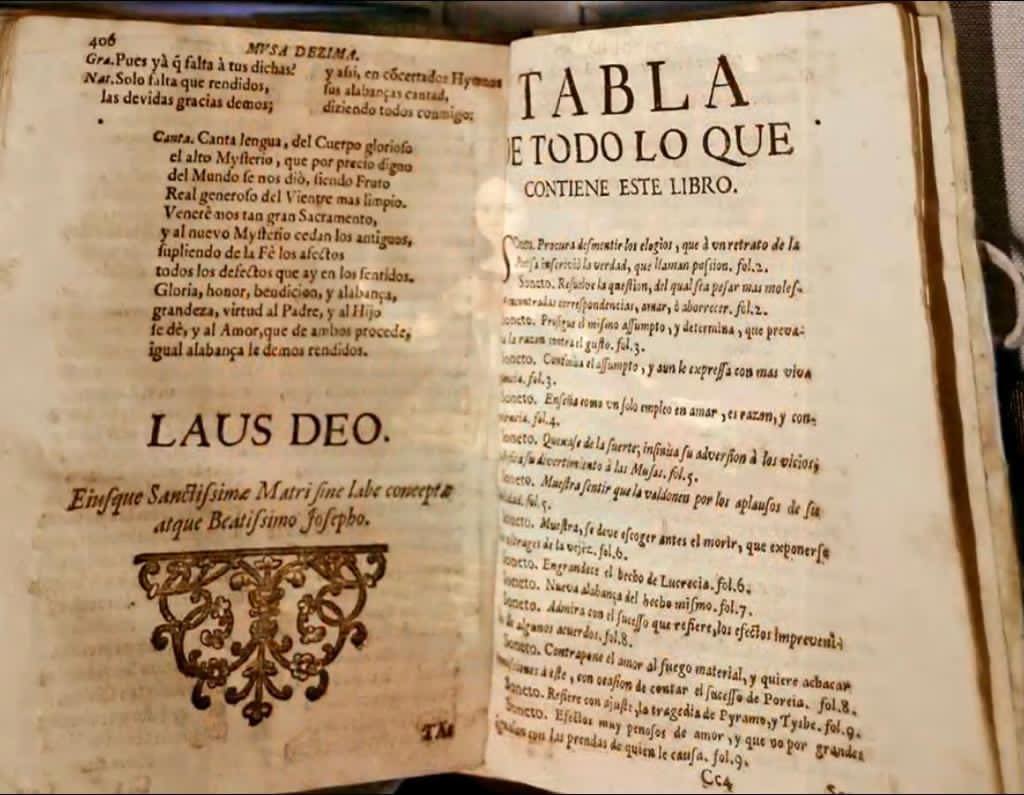 406
MVSA DEZIMA.
Gra. Pues yà q̃ falta à tus dichas?
Nat. Solo falta que rendidos,
las devidas gracias demos;
y aſsi, en cõcertados Hymnos
ſus alabanças cantad,
diziendo todos conmigo;
Canta. Canta lengua, del Cuerpo glorioſo
el alto Myſterio, que por precio digno
del Mundo ſe nos diò, ſiendo Fruto
Real generoſo del Vientre mas limpio.
Venerèmos tan gran Sacramento,
y al nuevo Myſterio cedan los antiguos,
ſupliendo de la Fè los afectos
todos los defectos que ay en los ſentidos.
Gloria, honor, bendicion, y alabança,
grandeza, virtud al Padre, y al Hijo
ſe dè, y al Amor, que de ambos procede,
igual alabança le demos rendidos.
LAUS DEO.
Eiuſque Sanctiſsimæ Matri ſine labe conceptæ
atque Beatiſsimo Joſepho.
TA
TABLA
DE TODO LO QUE
CONTIENE ESTE LIBRO.
Procura deſmentir los elogios, que à vn retrato de la
inſcriviò la verdad, que llaman paſsion. fol.2.
Soneto. Reſuelve la queſtion, del qual ſea peſar mas moleſ-
encontradas correſpondencias, amar, ò aborrecer. fol.2.
Soneto. Proſigue el miſmo aſſumpto, y determina, que preva-
la razon contra el guſto. fol.3.
Soneto. Continùa el aſſumpto, y aun le expreſſa con mas viva
fol.3.
Soneto. Enſeña como vn ſolo empleo en amar, es razon, y con-
fol.4.
Soneto. Quexaſe de la ſuerte; inſinùa ſu adverſion à los vicios;
ſu divertimiento à las Muſas. fol.5.
Soneto. Mueſtra ſentir que la valdonen por los aplauſos de ſu
fol.5.
Soneto. Mueſtra, ſe deve eſcoger antes el morir, que exponerſe
de la vejèz. fol.6.
Soneto. Engrandece el hecho de Lucrecia. fol.6.
Soneto. Nueva alabança del hecho miſmo. fol.7.
Soneto. Admira con el ſuceſſo que refiere, los efectos imprevenì-
de algunos acuerdos. fol.8.
Soneto. Contrapone el amor al fuego material, y quiere achacar
à eſte, con ocaſion de contar el ſuceſſo de Porcia. fol.8.
Soneto. Refiere con ajuſte, la tragedia de Pyramo, y Tysbe. fol.9.
Soneto. Efectos muy penoſos de amor, y que no por grandes
igualan con las prendas de quien le cauſa. fol.9.
Cc4